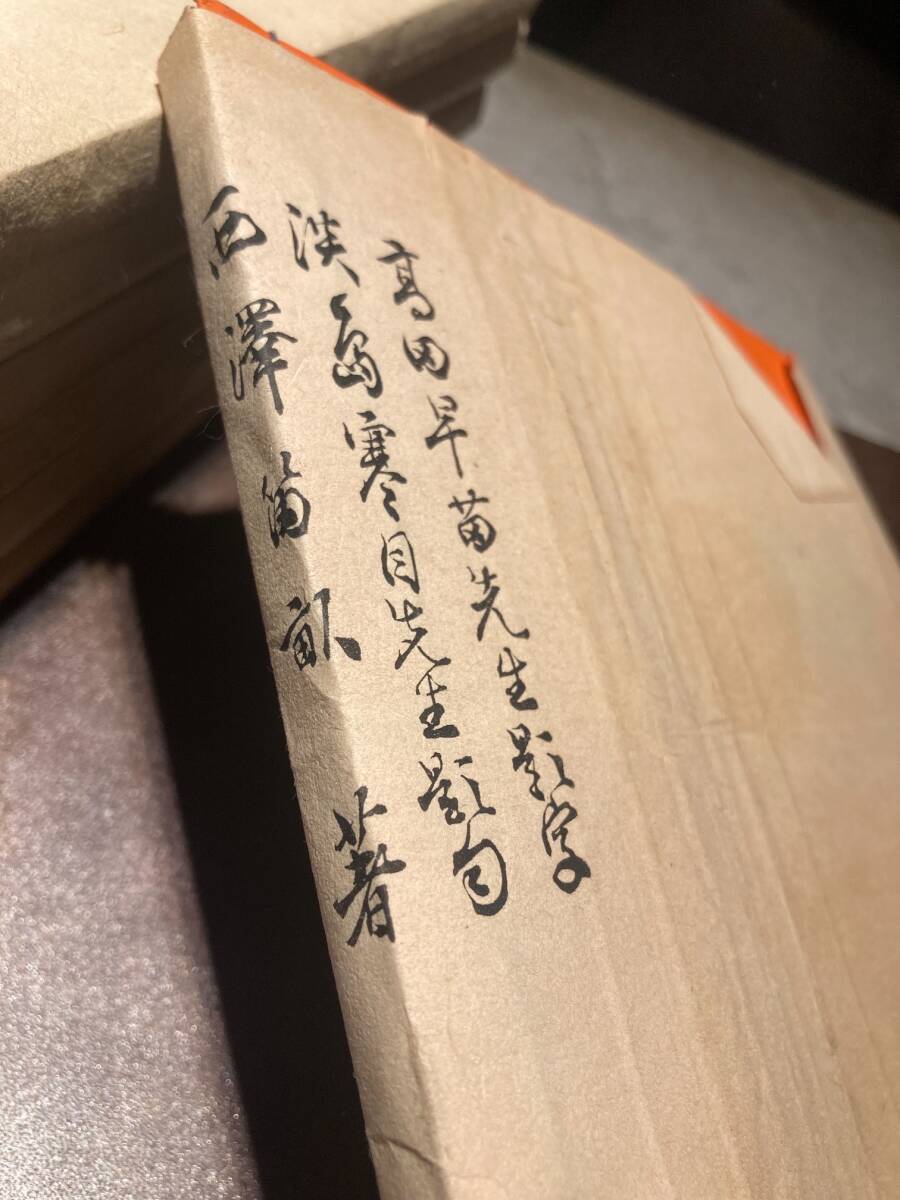 高田早苗先生題字
淡島寒月先生題句
西澤笛畝 著